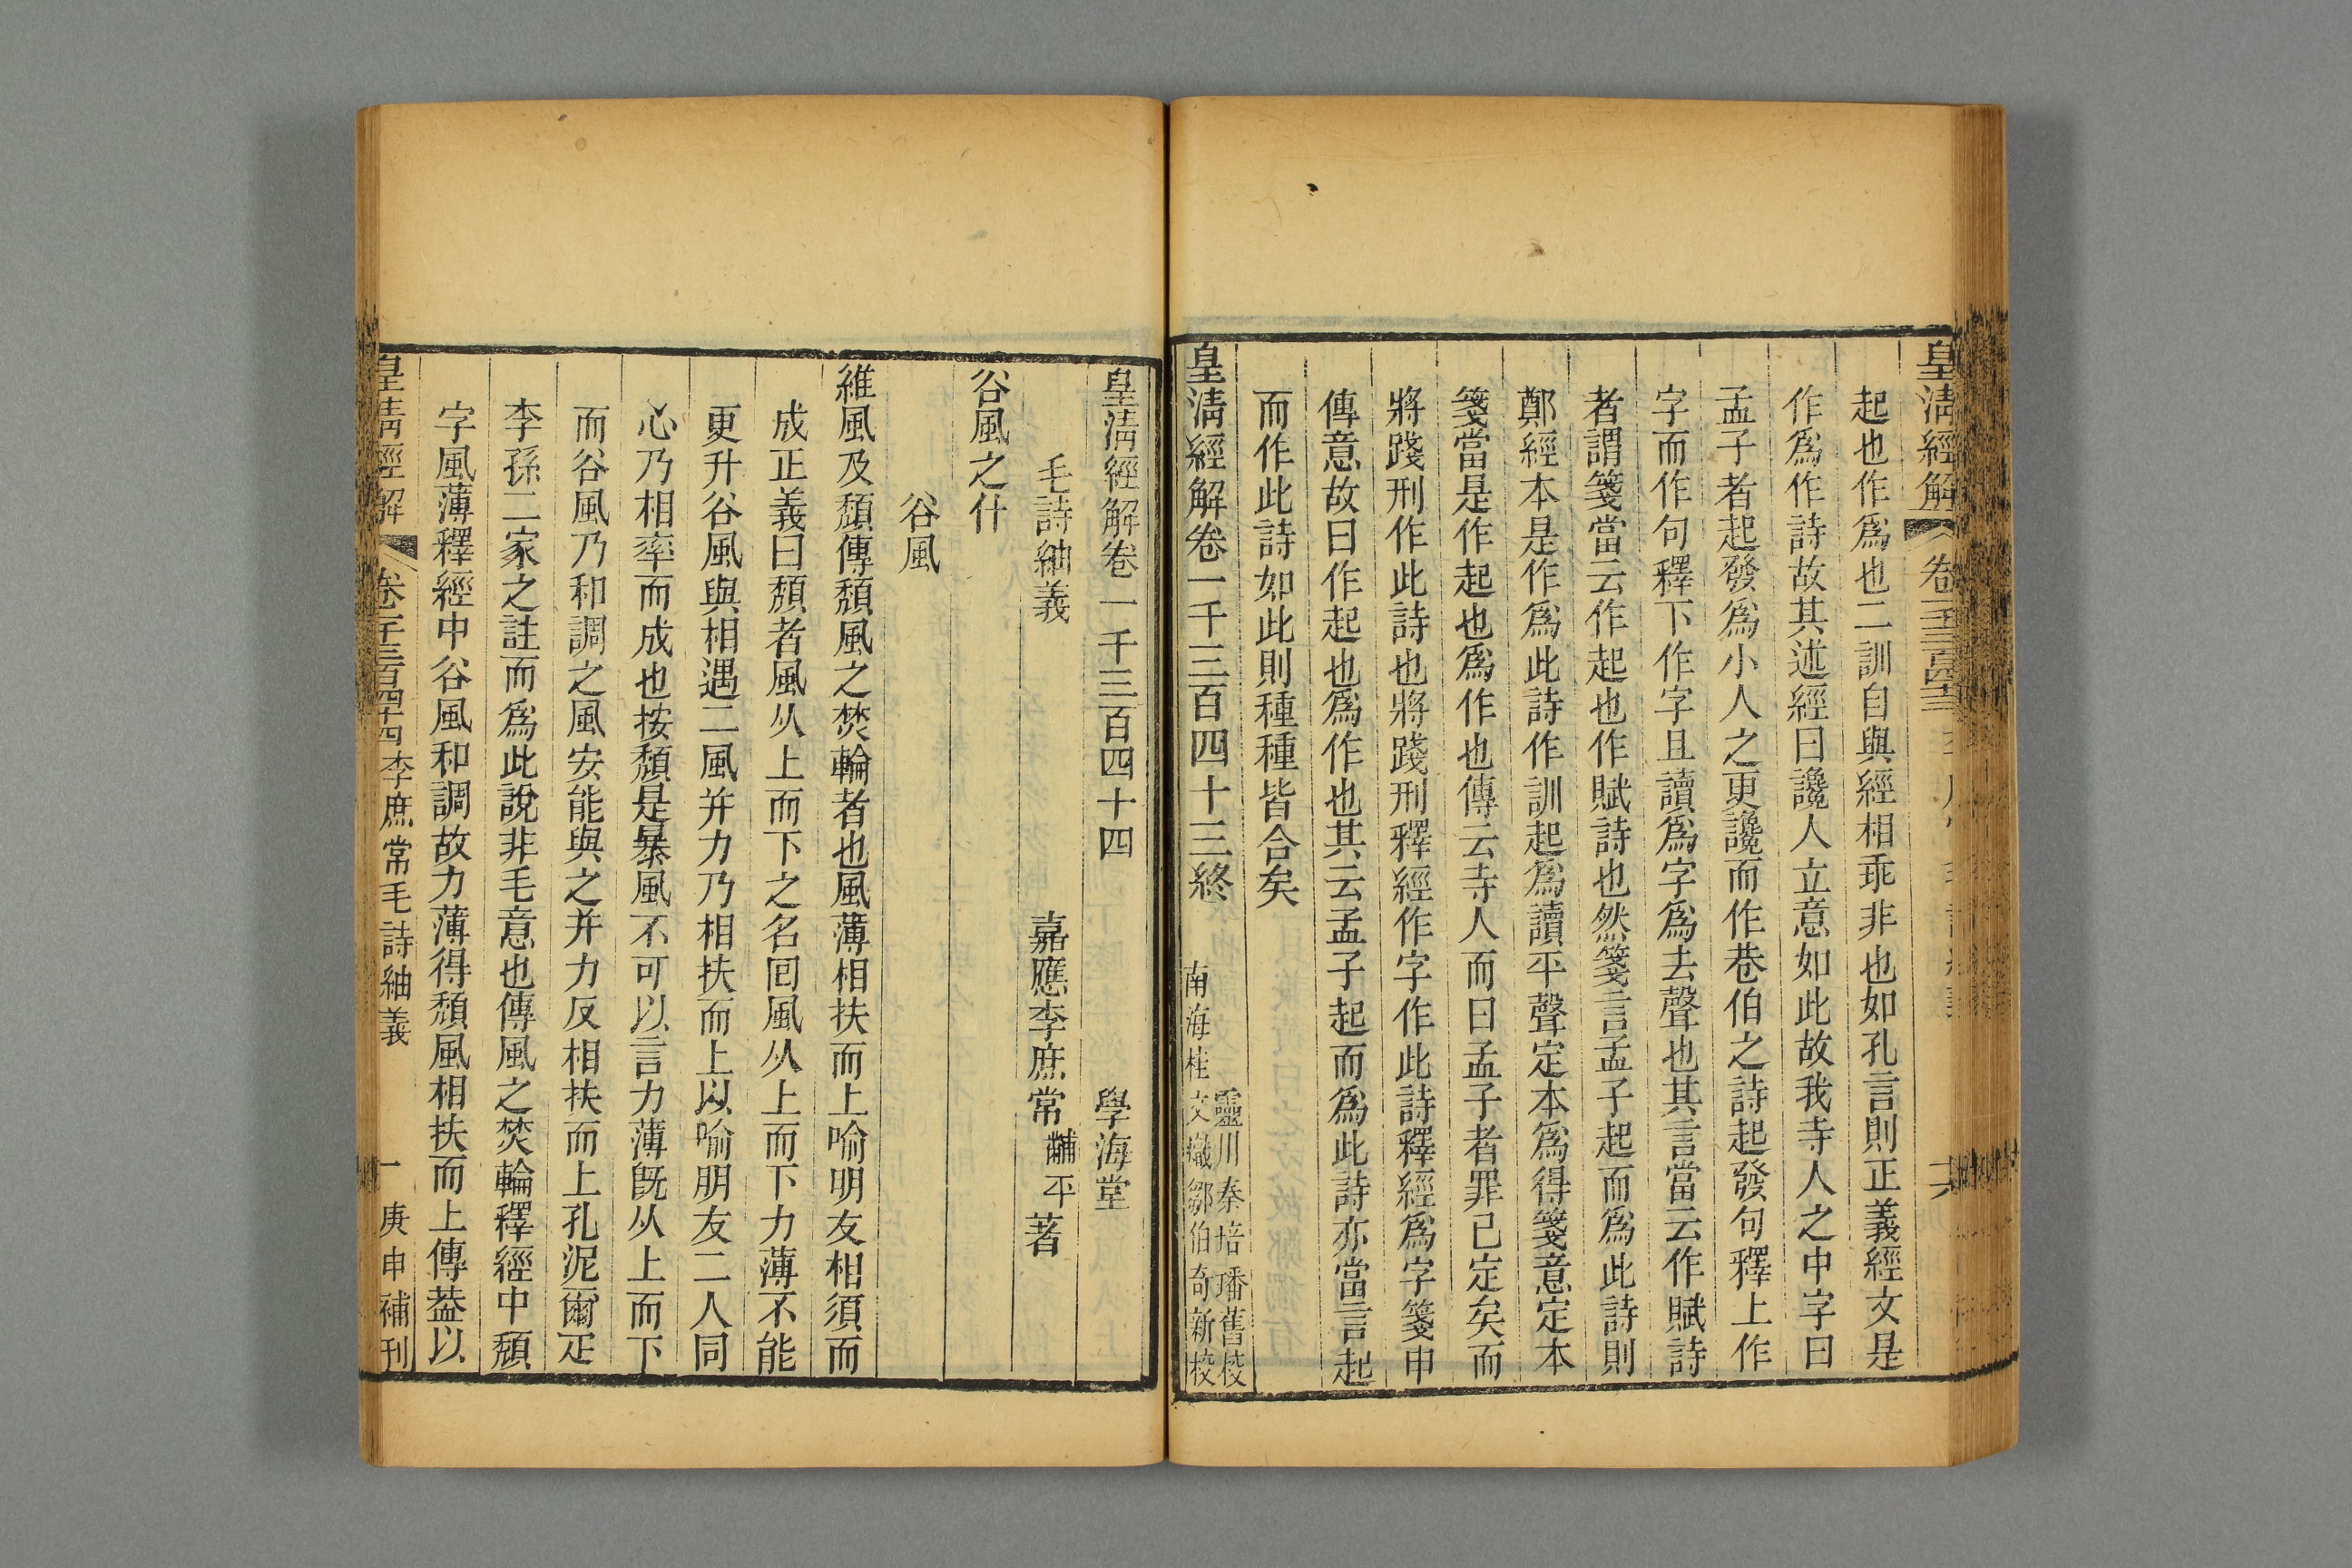 皇淸經解 卷一千三百四十三
起也作爲也二訓自與經相乖非也如孔言則正義經文是
作爲作詩故其述經曰讒人立意如此故我寺人之中字曰
孟子者起發爲小人之更讒而作巷伯之詩起發句釋上作
字而作句釋下作字且讀爲字爲去聲也其言當云作賦詩
者謂箋當云作起也作賦詩也然箋言孟子起而爲此詩則
鄭經本是作爲此詩作訓起爲讀平聲定本爲得箋意定本
箋當是作起也爲作也傳云寺人而曰孟子者罪已定矣而
將踐刑作此詩也將踐刑釋經作字作此詩釋經爲字箋申
傳意故曰作起也爲作也其云孟子起而爲此詩亦當言起
而作此詩如此則種種皆合矣
皇淸經解卷一千三百四十三終
靈川秦培璠舊校
南海桂文熾鄒伯奇新校
皇淸經解卷一千三百四十四 學海堂
毛詩紬義 嘉應李庶常黼平著
谷風之什
谷風
維風及頹傳頹風之焚輪者也風薄相扶而上喻朋友相須而
成正義曰頹者風从上而下之名回風从上而下力薄不能
更升谷風與相遇二風并力乃相扶而上以喻朋友二人同
心乃相率而成也按頹是暴風不可以言力薄旣从上而下
而谷風乃和調之風安能與之并力反相扶而上孔泥爾疋
李孫二家之註而爲此說非毛意也傳風之焚輪釋經中頹
字風薄釋經中谷風和調故力薄得頹風相扶而上傳葢以
皇淸經解 卷一千三百四十四 李庶常毛詩紬義 一 庚申補刊